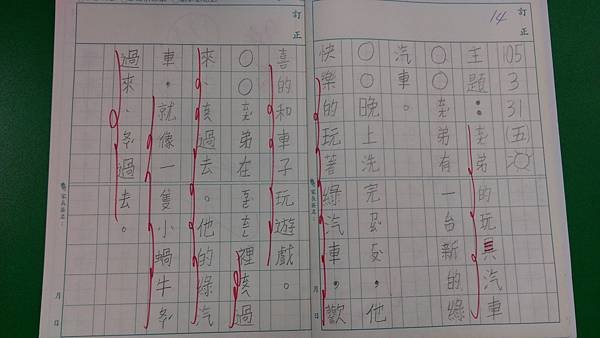 訂正
14
105 3 31 (五)
主題：弟的玩具汽車
○○弟有一台新的綠
汽車。
○○晚上洗完他
快樂的玩著綠汽車，歡
月 日
訂正
喜的和車子玩遊戲。
○○弟在裡過
來、過去。他的綠汽
車，就像一隻小蝸牛
過來、過去。
月 日